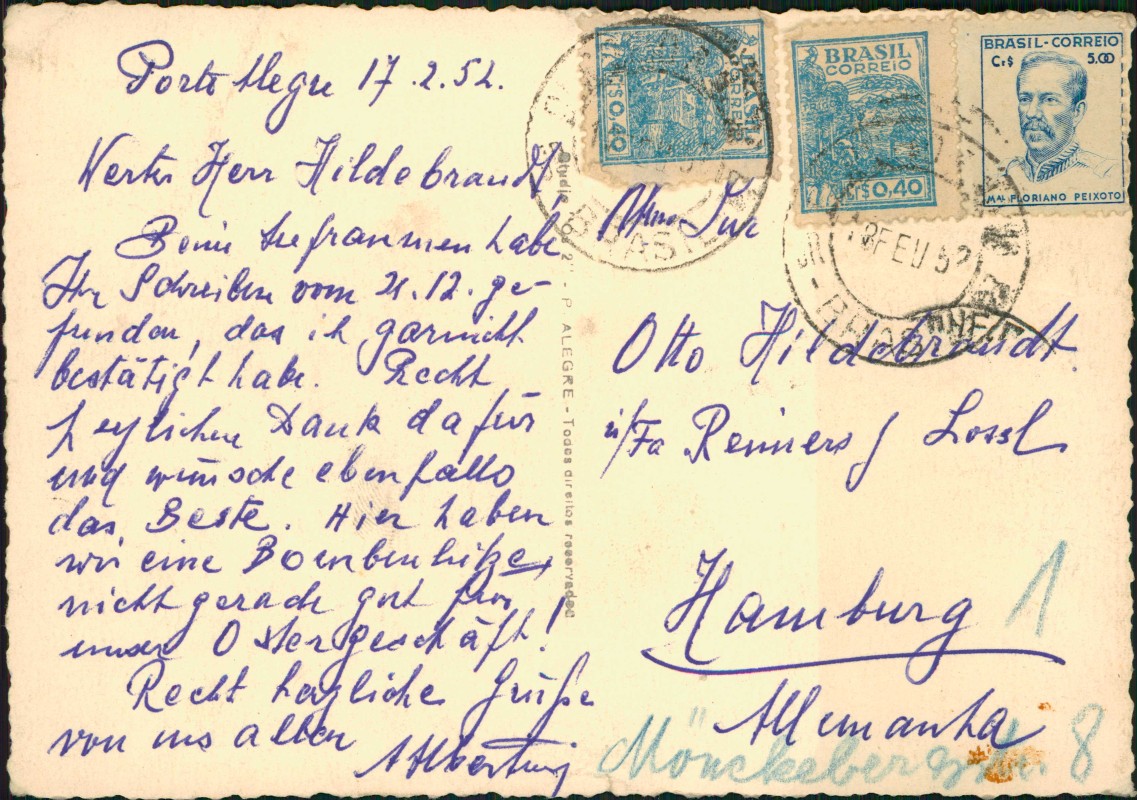 Porto Alegre 17.2.52.
Werter Herr Hildebrandt,
Beim aufräumen habe
Ihr Schreiben vom 21.12. ge-
funden, das ich garnicht
bestätigt habe. Recht
herzlichen Dank dafür
und wünsche ebenfalls
das Beste. Hier haben
wir eine Bombenhitze,
nicht gerade gut für
unser Ostergeschäft!
Recht herzliche Grüße
von uns allen
Studio "O 2" - P. ALEGRE - Todos direitos reservados
BRASIL
CORREIO
CR$ 0,40
BRASIL
CORREIO
CR$ 0,40
BRASIL-CORREIO
Cr$ 5,00
MAL FLORIANO PEIXOTO
BRASIL
18 FEV 52
BRASIL
Snr
Otto Hildebrandt.
i/Fa Reiners & Lossl
Hamburg 1
Allemanha
Mönckebergstr. 8